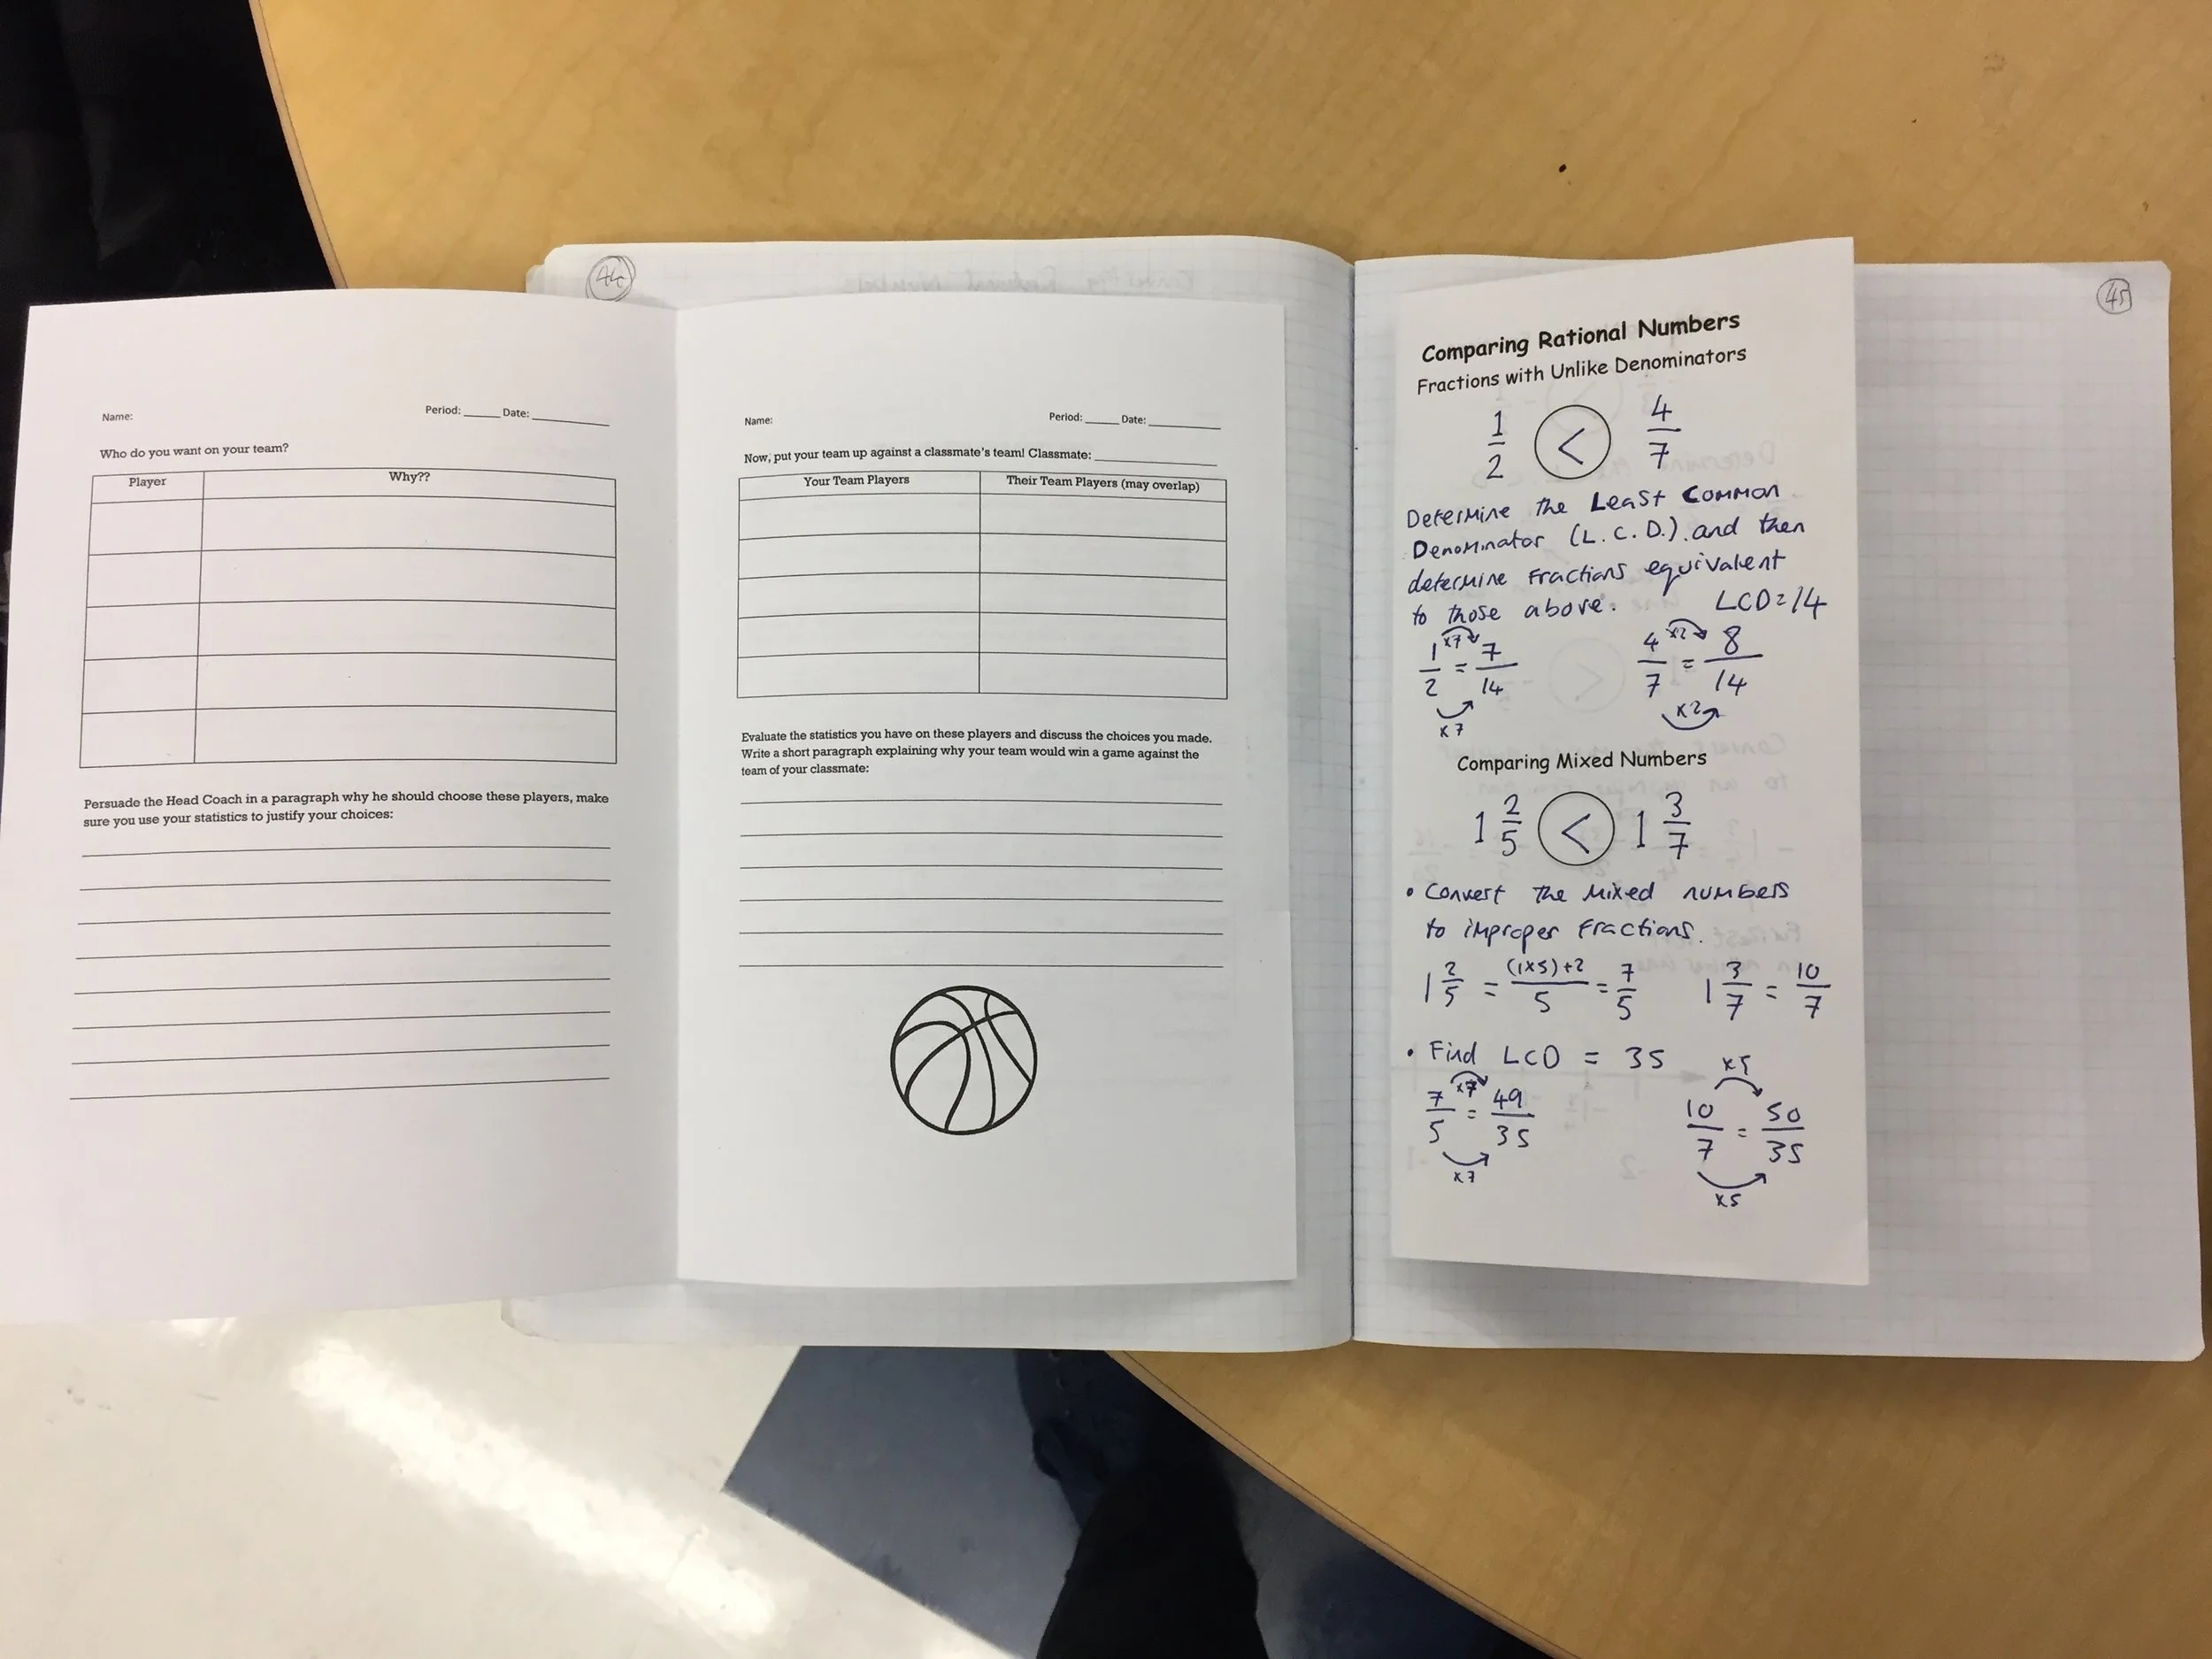 44
Name: Period: _____ Date: _____
Who do you want on your team?
Player Why??
Persuade the Head Coach in a paragraph why he should choose these players, make
sure you use your statistics to justify your choices:
Name: Period: _____ Date: _____
Now, put your team up against a classmate's team! Classmate: _____
Your Team Players Their Team Players (may overlap)
Evaluate the statistics you have on these players and discuss the choices you made.
Write a short paragraph explaining why your team would win a game against the
team of your classmate:
45
Comparing Rational Numbers
Fractions with Unlike Denominators
1/2 < 4/7
Determine the Least Common
Denominator (L.C.D.) and then
determine fractions equivalent
to those above. LCD=14
x7 x2
1/2 = 7/14 4/7 = 8/14
x7 x2
Comparing Mixed Numbers
1 2/5 < 1 3/7
• Convert the mixed numbers
to improper fractions.
1 2/5 = (1x5)+2/5 = 7/5 1 3/7 = 10/7
• Find LCD = 35
x7 x5
7/5 = 49/35 10/7 = 50/35
x7 x5